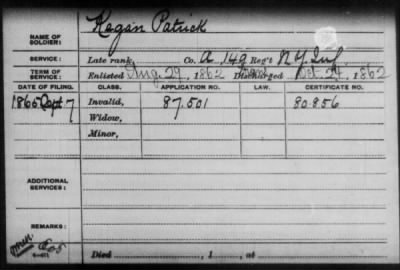 Kegan Patrick
NAME OF SOLDIER:
SERVICE: Late rank, Co. A 149 Reg't N.Y. Inf.
TERM OF SERVICE: Enlisted Aug. 29, 1862 Discharged Oct. 24, 1862
DATE OF FILING. CLASS. APPLICATION NO. LAW. CERTIFICATE NO.
1865 Sept 7 Invalid, 87.501 80.856
Widow,
Minor,
ADDITIONAL SERVICES:
REMARKS:
Died , 1 , at